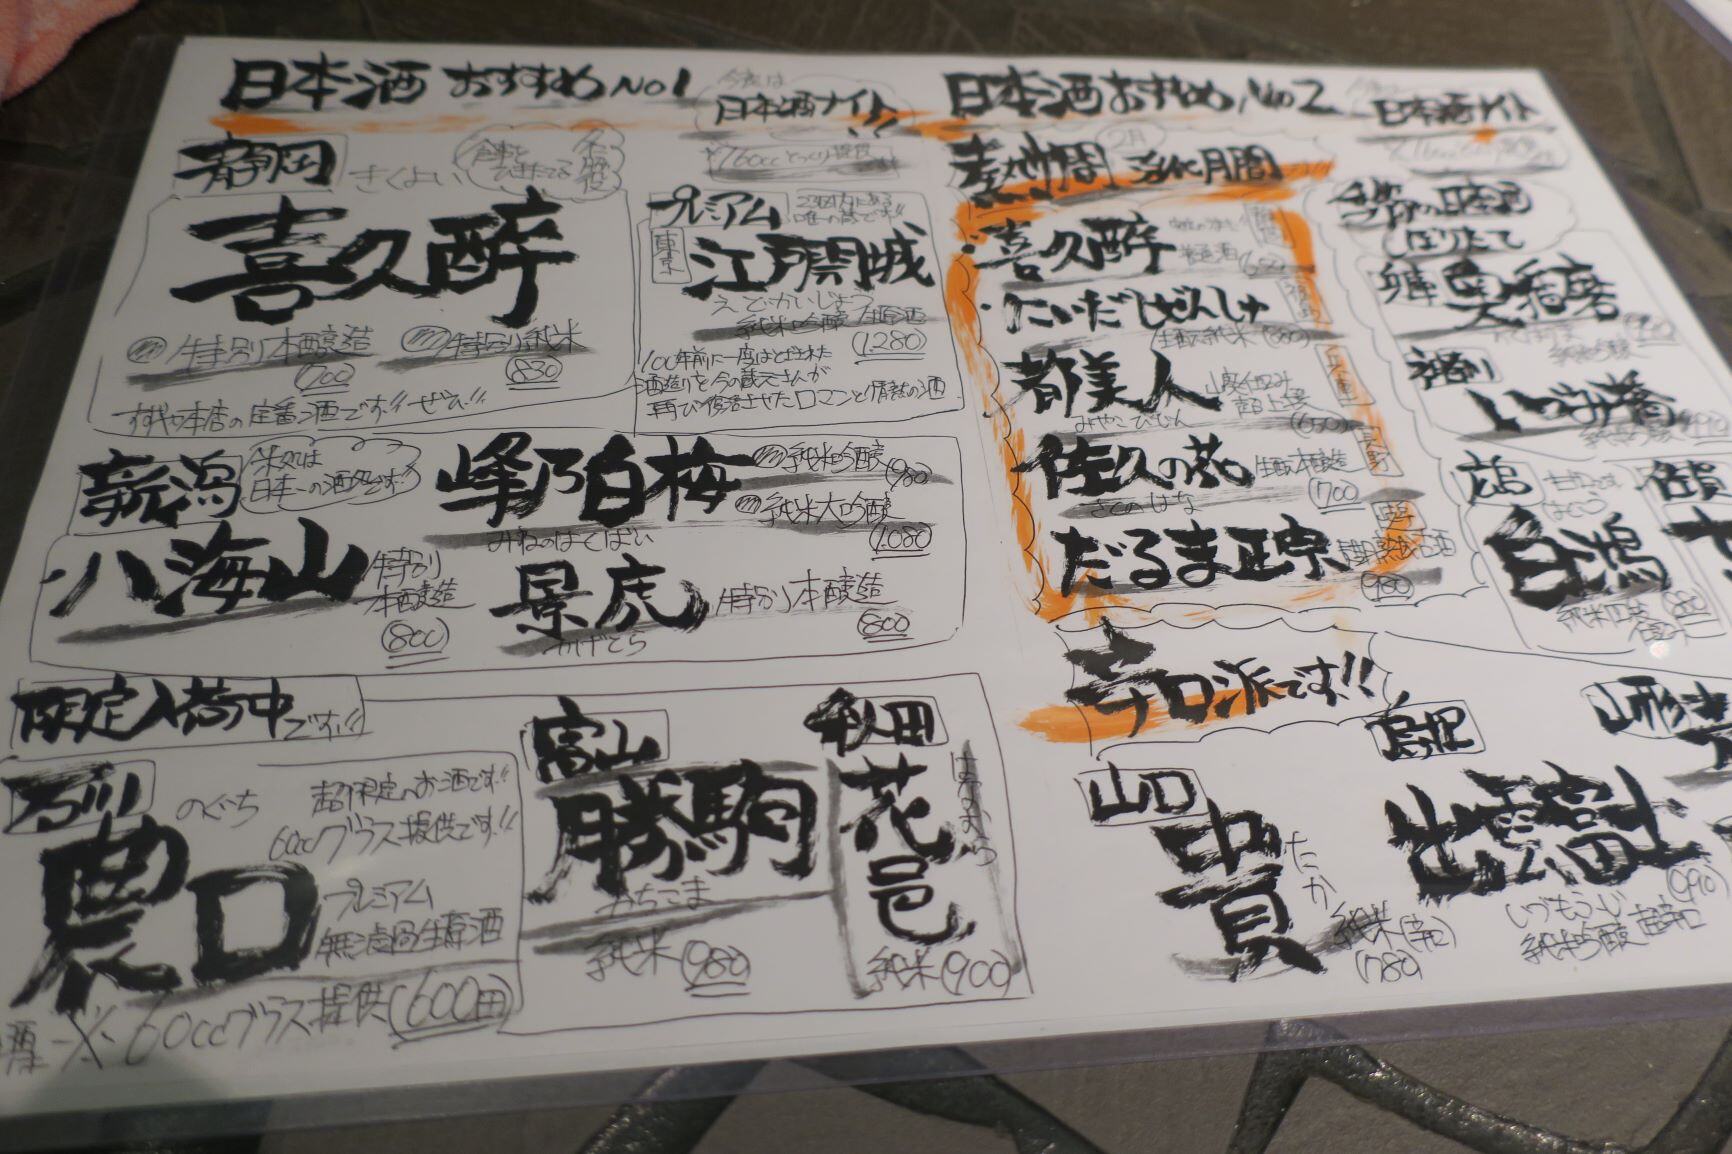 日本酒 おすすめ No1
今夜は
日本酒ナイト!!
※160ccとっくり提供
静岡
きくよい
喜久酔
特別本醸造
(700)
特別純米
(830)
すずや本店の定番酒です!!ぜひ!!
プレミアム
23区内にある
唯一の蔵です!!
東京
江戸開城
えどかいじょう
純米吟醸 生原酒
(1.280)
100年前に一度はとざされた
酒造りを今の蔵元さんが
再び復活させたロマンと情熱の酒
新潟
米処は
日本一の酒処です!!
峰乃白梅
みねのはくばい
純米吟醸 (980)
純米大吟醸
(1.080)
八海山
特別
本醸造
(800)
景虎
かげとら
特別本醸造
(800)
限定入荷中です!!
石川
のぐち
超限定のお酒です!!
60ccグラス提供です!!
農口
プレミアム
無濾過生原酒
※60ccグラス提供(600円)
富山
勝駒
かちこま
純米 (980)
秋田
花邑
はなむら
純米(900)
日本酒おすすめ No2
日本酒ナイト
2月
熱燗 強化月間
・喜久酔
普通酒
・にいだしぜんしゅ
生酛純米
都美人
みやこびじん
山廃仕込み
超上撰
兵庫
佐久の花
さくのはな
生酛本醸造
(700)
長野
だるま正宗
しぼりたて
兵庫
奥播磨
神奈川
いづみ橋
広島
白鴻
純米四段
佐賀
辛口派です!!
山口
貴
たか
純米(辛口)
(780)
出雲富士
いづもふじ
純米吟醸 超辛口
(990)
山形